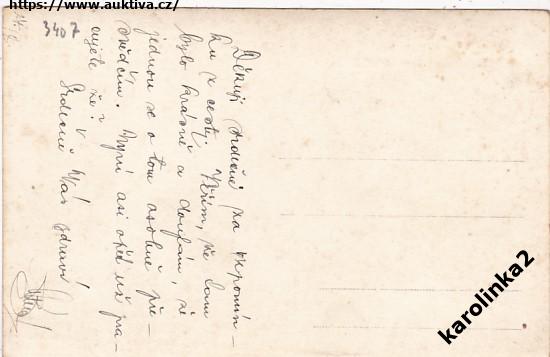 https://www.auktiva.cz/
3407
Děkuji srdečně za vzpomín-
ku z cesty. Věřím, že tam
bylo krásně a doufám, že
jednou se o tom osobně pře-
svědčím. Nyní asi opět už pra-
cujete že?
Srdečně Vás zdraví
karolinka2